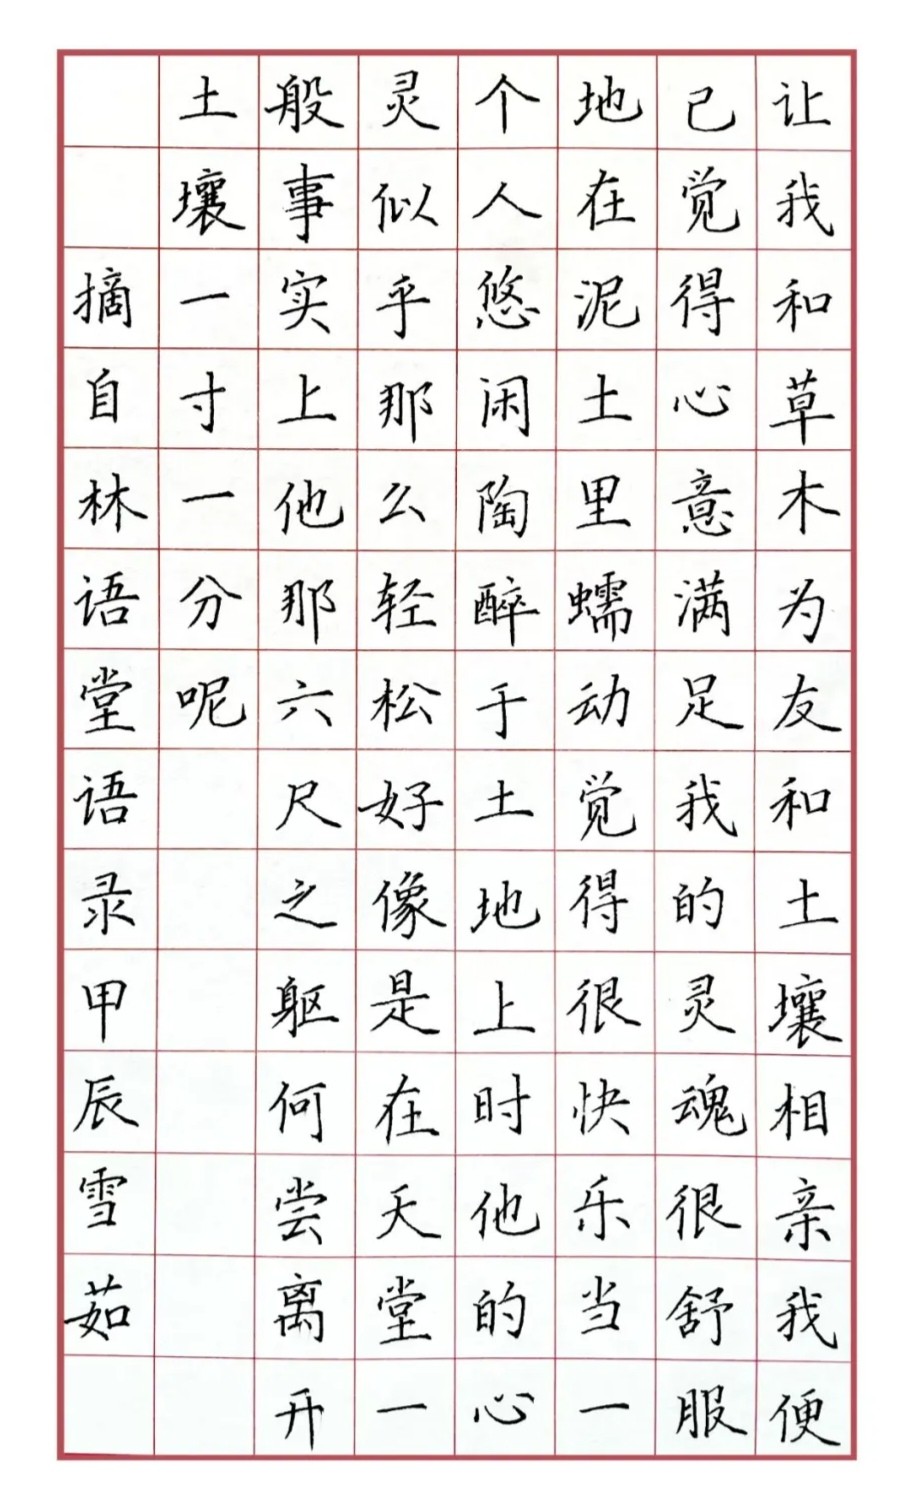 让我和草木为友和土壤相亲我便
已觉得心意满足我的灵魂很舒服
地在泥土里蠕动觉得很快乐当一
个人悠闲陶醉于土地上时他的心
灵似乎那么轻松好像是在天堂一
般事实上他那六尺之躯何尝离开
土壤一寸一分呢
摘自林语堂语录甲辰雪茹